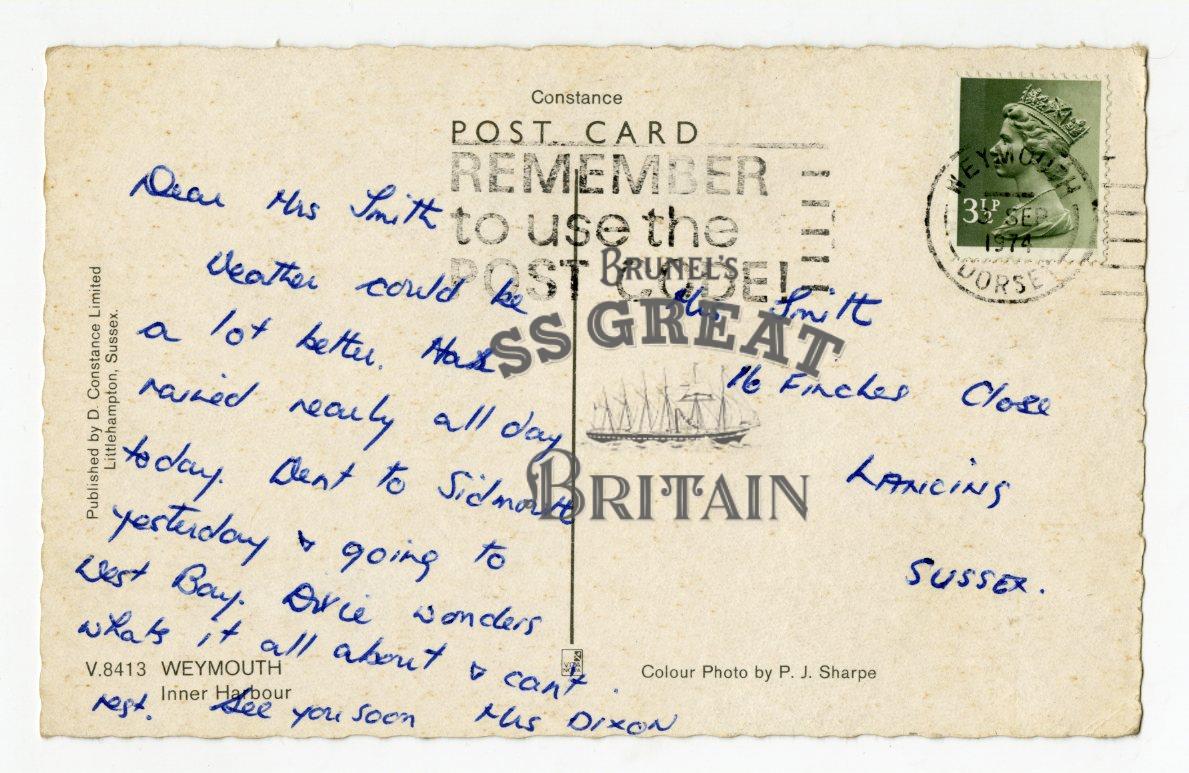 Constance
POST CARD
REMEMBER
to use the
POST CODE!
WEYMOUTH
SEP
1974
DORSET
3½P
Dear Mrs Smith
Weather could be
a lot better. Has
rained nearly all day
today. Went to Sidmouth
yesterday & going to
West Bay. Dixie wonders
whats it all about & cant
rest. See you soon Mrs DIXON
Mrs. Smith
16 Finches Close
LANCING
SUSSEX.
BRUNEL'S
SS GREAT
BRITAIN
Published by D. Constance Limited
Littlehampton, Sussex.
V.8413 WEYMOUTH
Inner Harbour
Colour Photo by P. J. Sharpe